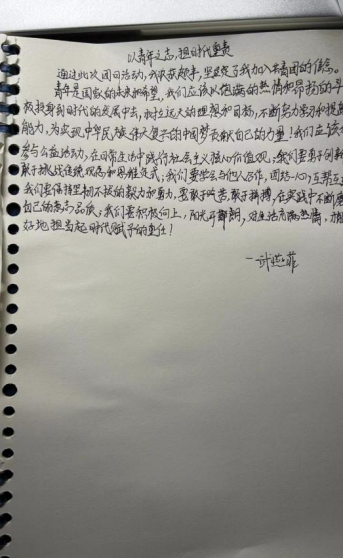 以青年之志,担时代重责
通过此次团日活动,我收获颇丰,坚定了我加入共青团的信念。
青年是国家的未来和希望,我们应该以饱满的热情和昂扬的斗
极投身到时代的发展中去,树立远大的理想和目标,不断努力学习和提高
能力,为实现中华民族伟大复兴的中国梦贡献自己的力量!我们应该积
参与公益活动,在日常生活中践行社会主义核心价值观;我们要勇于创新
敢于挑战传统观念和思维模式;我们要学会与他人合作,团结一心,互帮互
我们要保持坚韧不拔的毅力和勇气,要敢于吃苦,敢于拼搏,在实践中不断磨
自己的意志品质;我们要积极向上,阳光开朗,对生活充满热情,才能
好地担当起时代赋予的重任!
一许燕菲